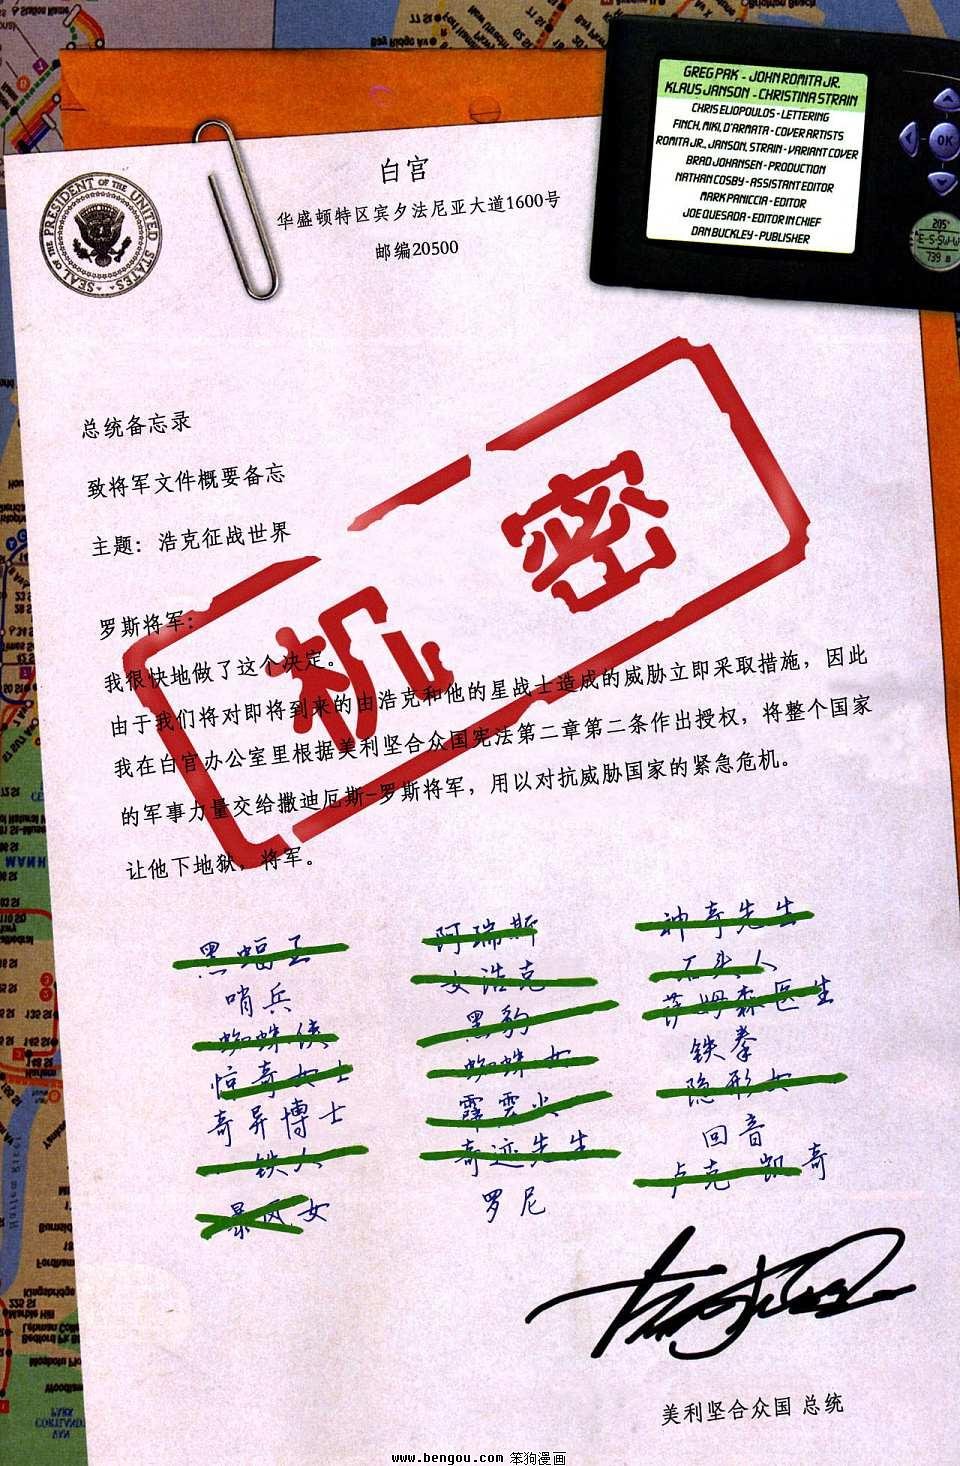 GREG PAK - JOHN ROMITA JR.
KLAUS JANSON - CHRISTINA STRAIN
CHRIS ELIOPOULOS - LETTERING
FINCH, MIKI, D'ARMATA - COVER ARTISTS
ROMITA JR., JANSON, STRAIN - VARIANT COVER
BRAD JOHANSEN - PRODUCTION
NATHAN COSBY - ASSISTANT EDITOR
MARK PANICCIA - EDITOR
JOE QUESADA - EDITOR IN CHIEF
DAN BUCKLEY - PUBLISHER
OK
205°
E-S-SW-W
739
SEAL OF THE PRESIDENT OF THE UNITED STATES
白宫
华盛顿特区宾夕法尼亚大道1600号
邮编20500
总统备忘录
致将军文件概要备忘
主题：浩克征战世界
机密
罗斯将军：
我很快地做了这个决定。
由于我们将对即将到来的由浩克和他的星战士造成的威胁立即采取措施，因此
我在白宫办公室里根据美利坚合众国宪法第二章第二条作出授权，将整个国家
的军事力量交给撒迪厄斯-罗斯将军，用以对抗威胁国家的紧急危机。
让他下地狱，将军。
黑蝠王
哨兵
蜘蛛侠
惊奇女士
奇异博士
铁人
暴风女
阿瑞斯
女浩克
黑豹
蜘蛛女
霹雳火
奇迹先生
罗尼
神奇先生
石头人
萨姆森医生
铁拳
隐形女
回音
卢克 凯奇
美利坚合众国 总统
www.bengou.com 笨狗漫画